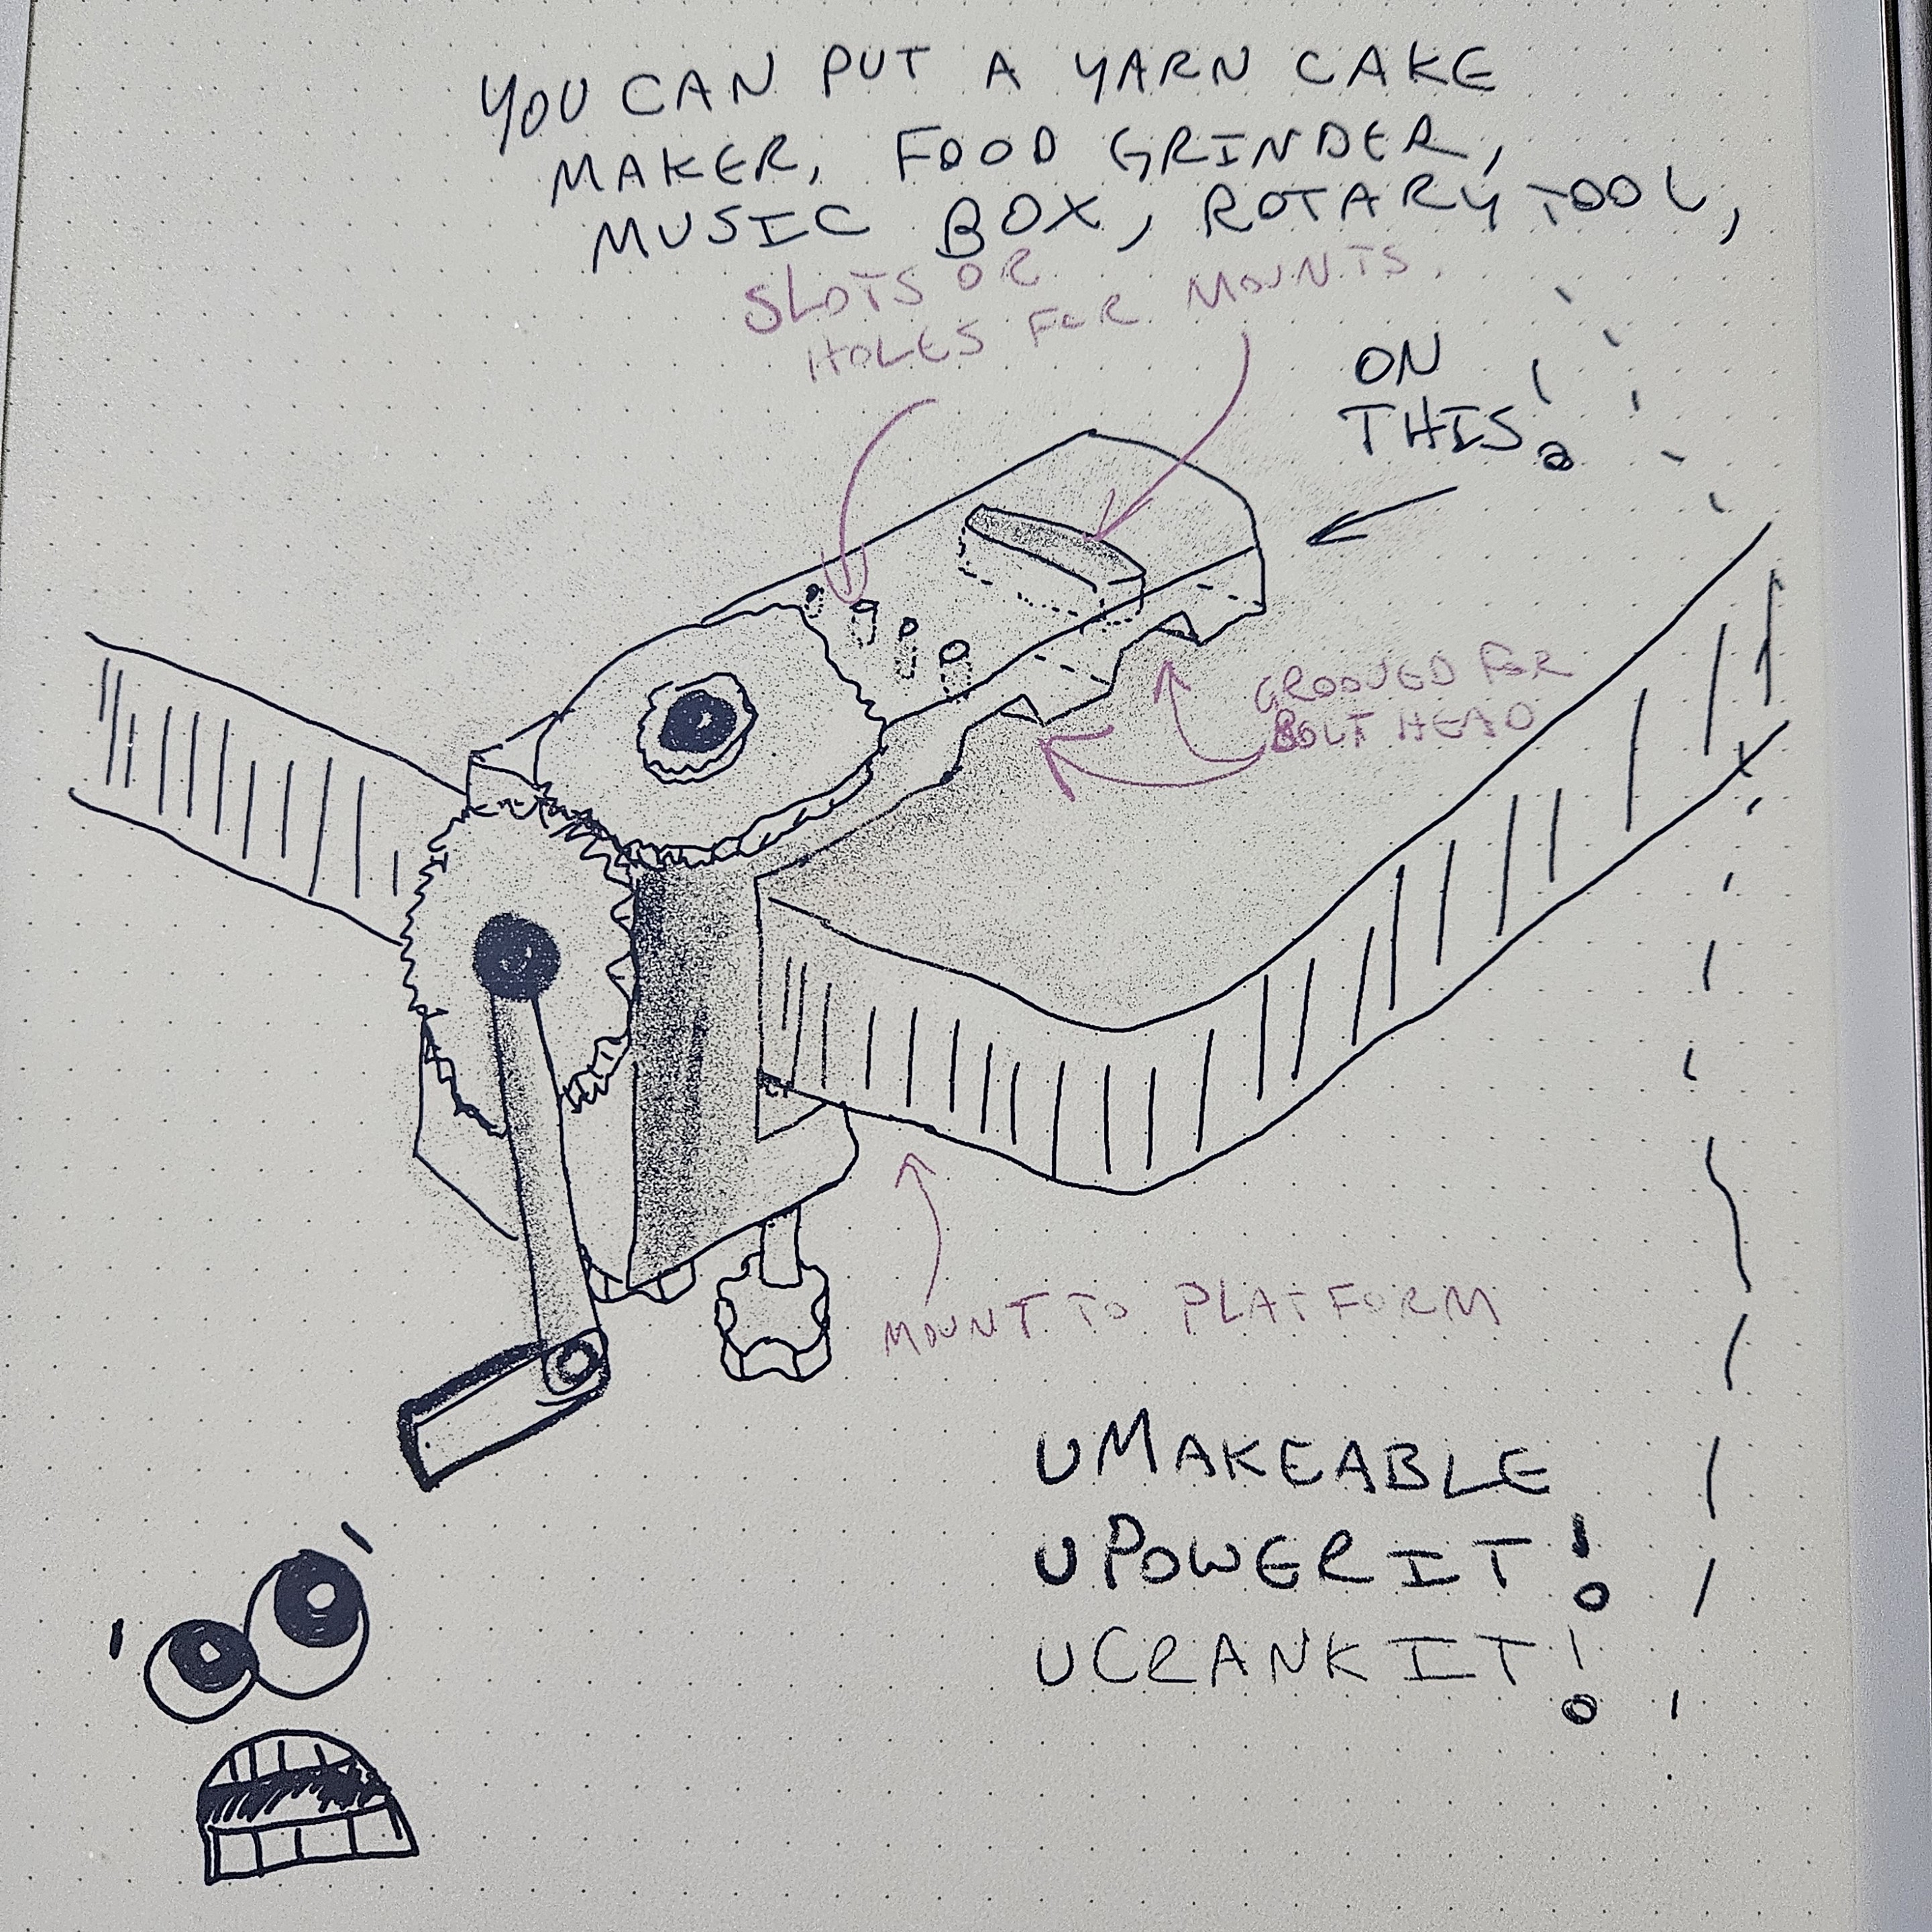 YOU CAN PUT A YARN CAKE
MAKER, FOOD GRINDER,
MUSIC BOX, ROTARY TOOL,
SLOTS OR
HOLES FOR MOUNTS
ON
THIS
GROOVED FOR
BOLT HEAD
MOUNT TO PLATFORM
UMAKEABLE
UPOWERIT!
UCRANKIT!